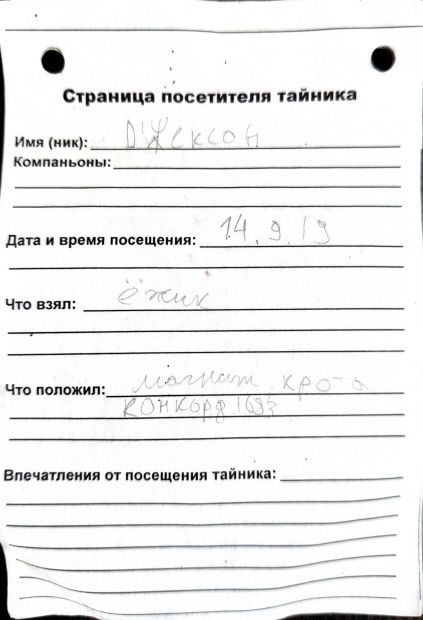 Страница посетителя тайника
Имя (ник): Джексон
Компаньоны:
Дата и время посещения: 14.9.19
Что взял: ёжик
Что положил: магнит крота
конкорд 1693
Впечатления от посещения тайника: